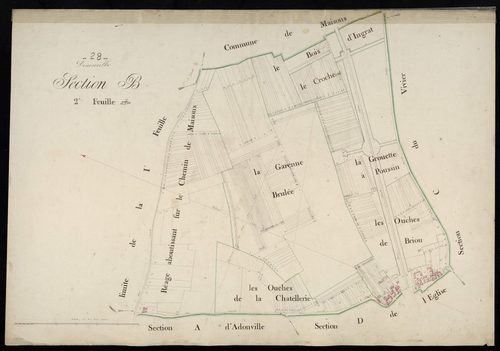 - 28 -
Section B.
2e Feuille
Commune de Maisons
le Boix d'Ingrat
le Crocheau
Vivier
du
Section C
limite de la 1e Feuille
Réage aboutissant sur le Chemin de Maisons
la Garenne
Brulée
la Grouette
à Poussin
les Ouches
de Briou
les Ouches
de la Chatellerie
Section A d'Adonville
Section D de l'Eglise